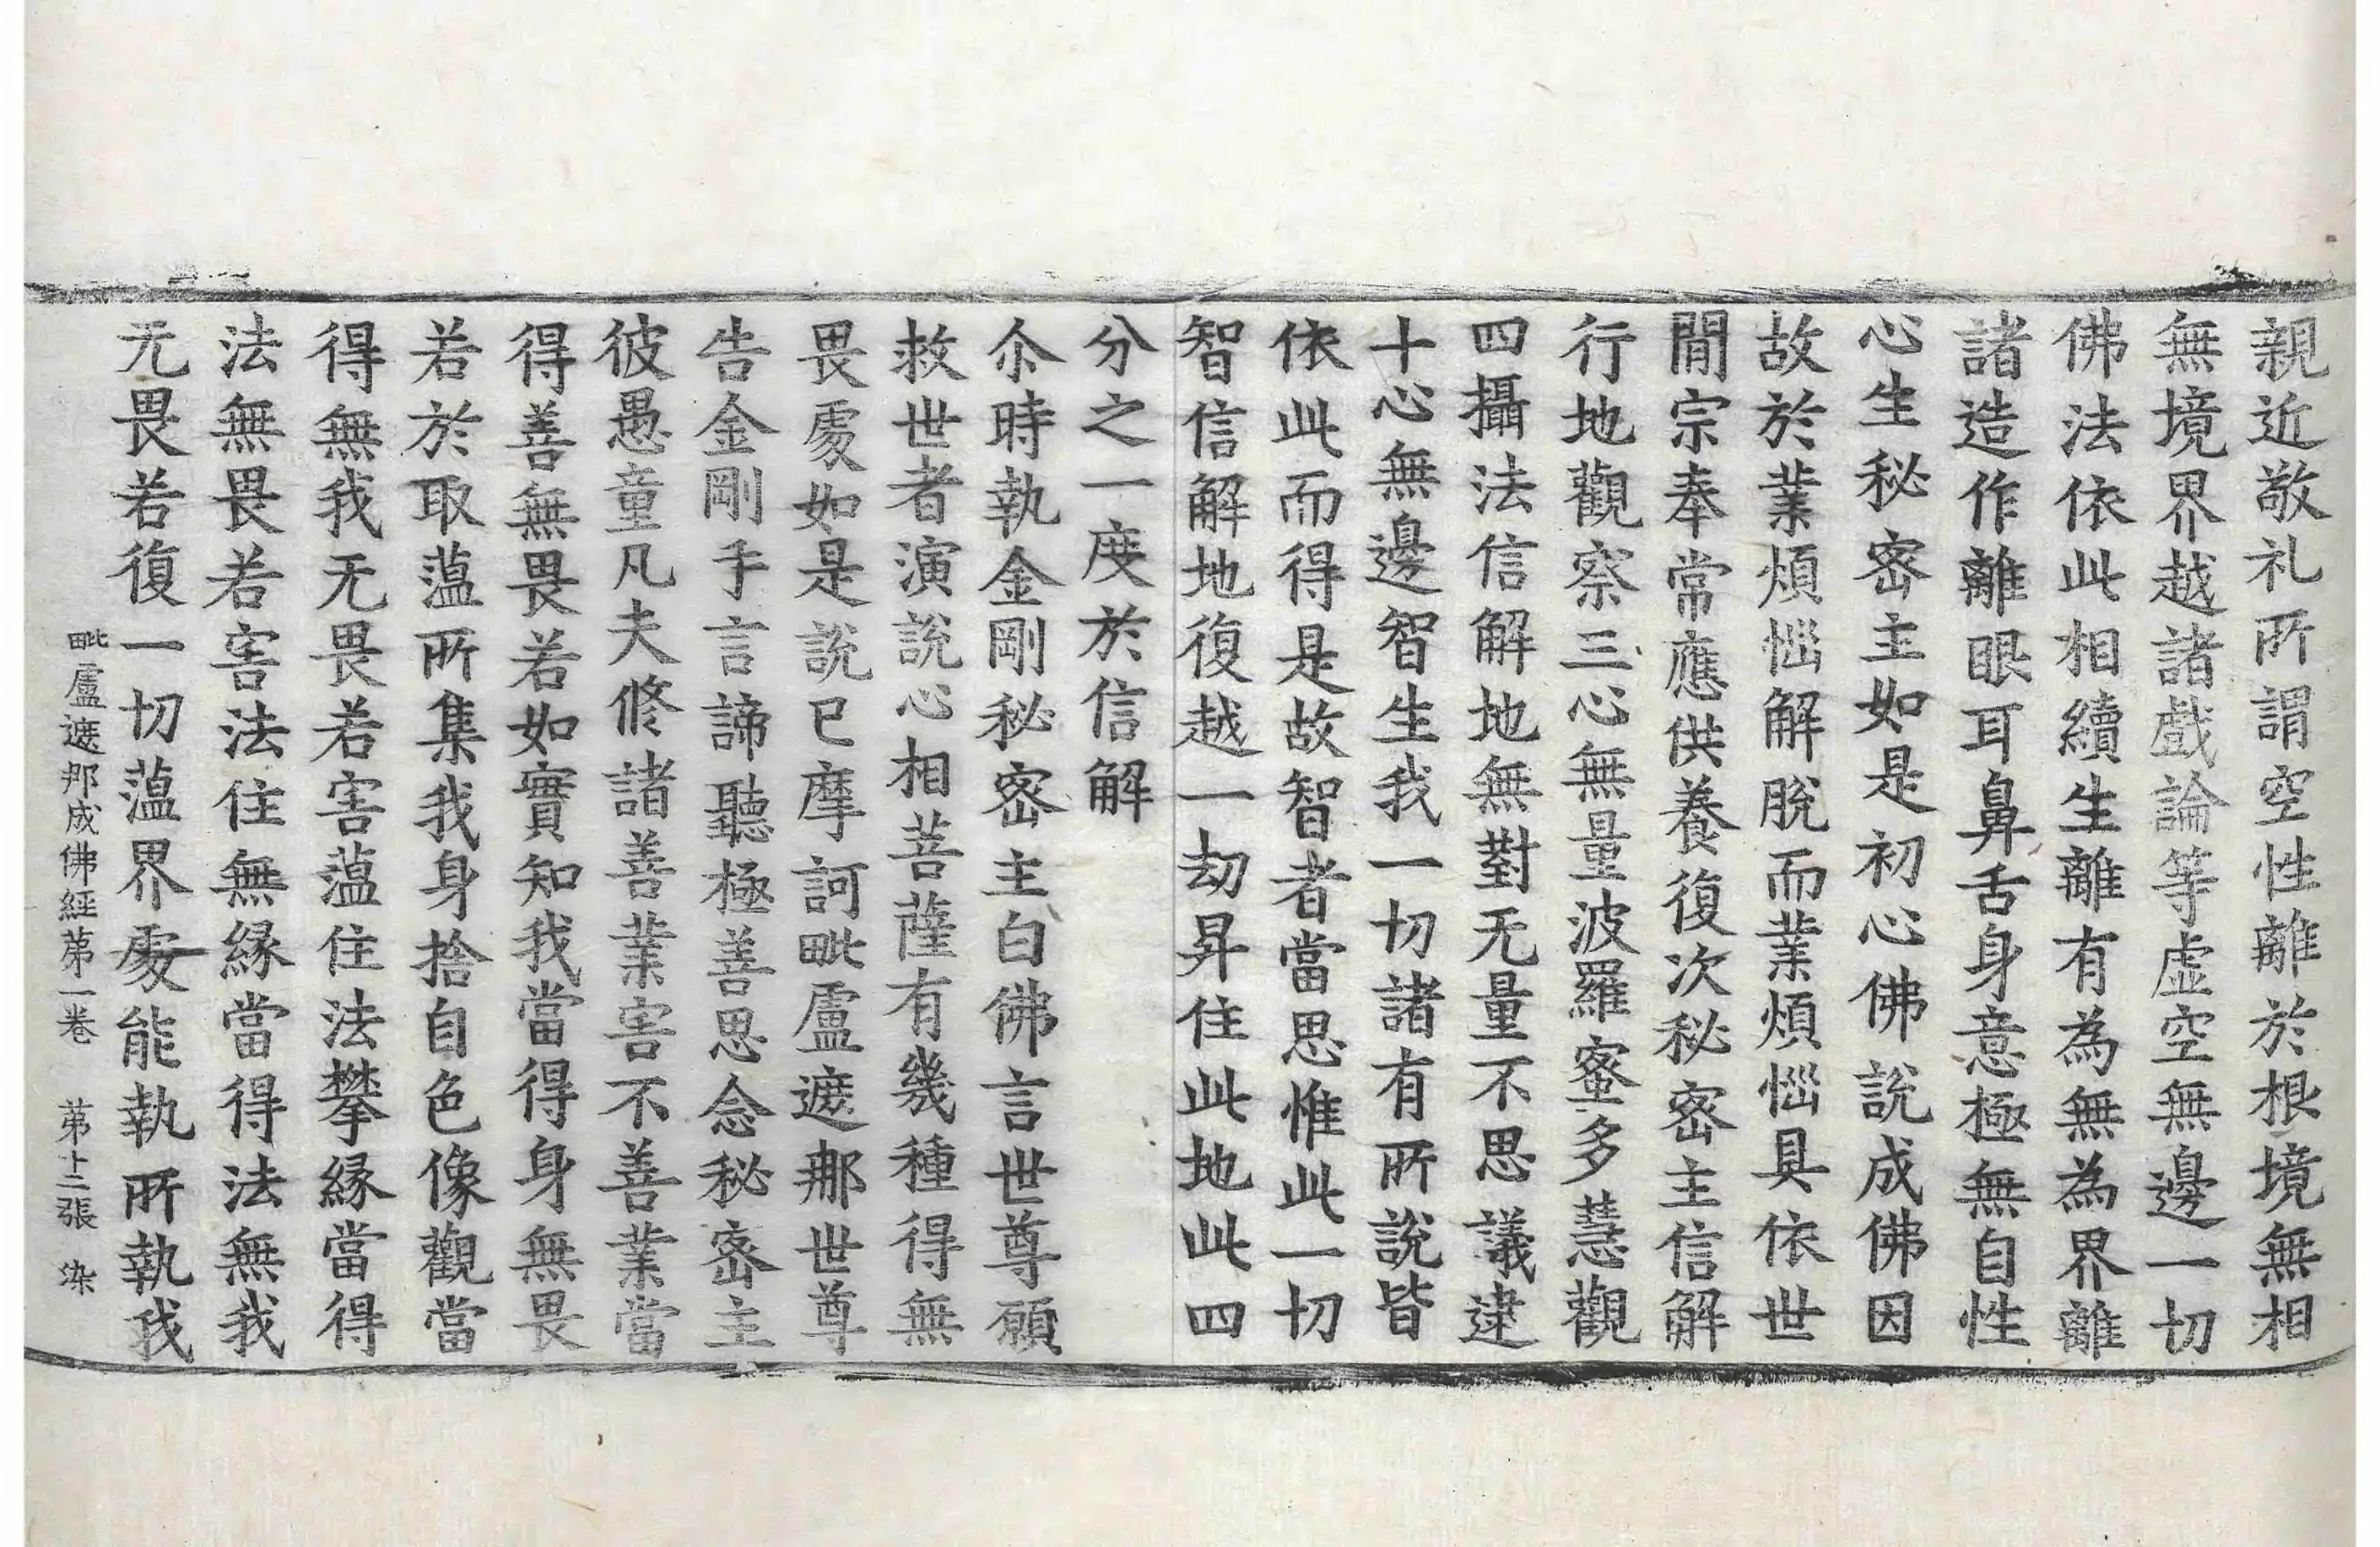 親近敬礼所謂空性離於根境無相
無境界越諸戲論等虛空無邊一切
佛法依此相續生離有為無為界離
諸造作離眼耳鼻舌身意極無自性
心生秘密主如是初心佛說成佛因
故於業煩惱解脫而業煩惱具依世
閒宗奉常應供養復次秘密主信解
行地觀察三心無量波羅蜜多慧觀
四攝法信解地無對无量不思議逮
十心無邊智生我一切諸有所說皆
依此而得是故智者當思惟此一切
智信解地復越一劫昇住此地此四
分之一度於信解
尒時執金剛秘密主白佛言世尊願
救世者演說心相菩薩有幾種得無
畏處如是說已摩訶毗盧遮那世尊
告金剛手言諦聽極善思念秘密主
彼愚童凡夫修諸善業害不善業當
得善無畏若如實知我當得身無畏
若於取蘊所集我身捨自色像觀當
得無我无畏若害蘊住法攀緣當得
法無畏若害法住無緣當得法無我
无畏若復一切蘊界處能執所執我
毗盧遮那成佛經第一卷　第十二張　染